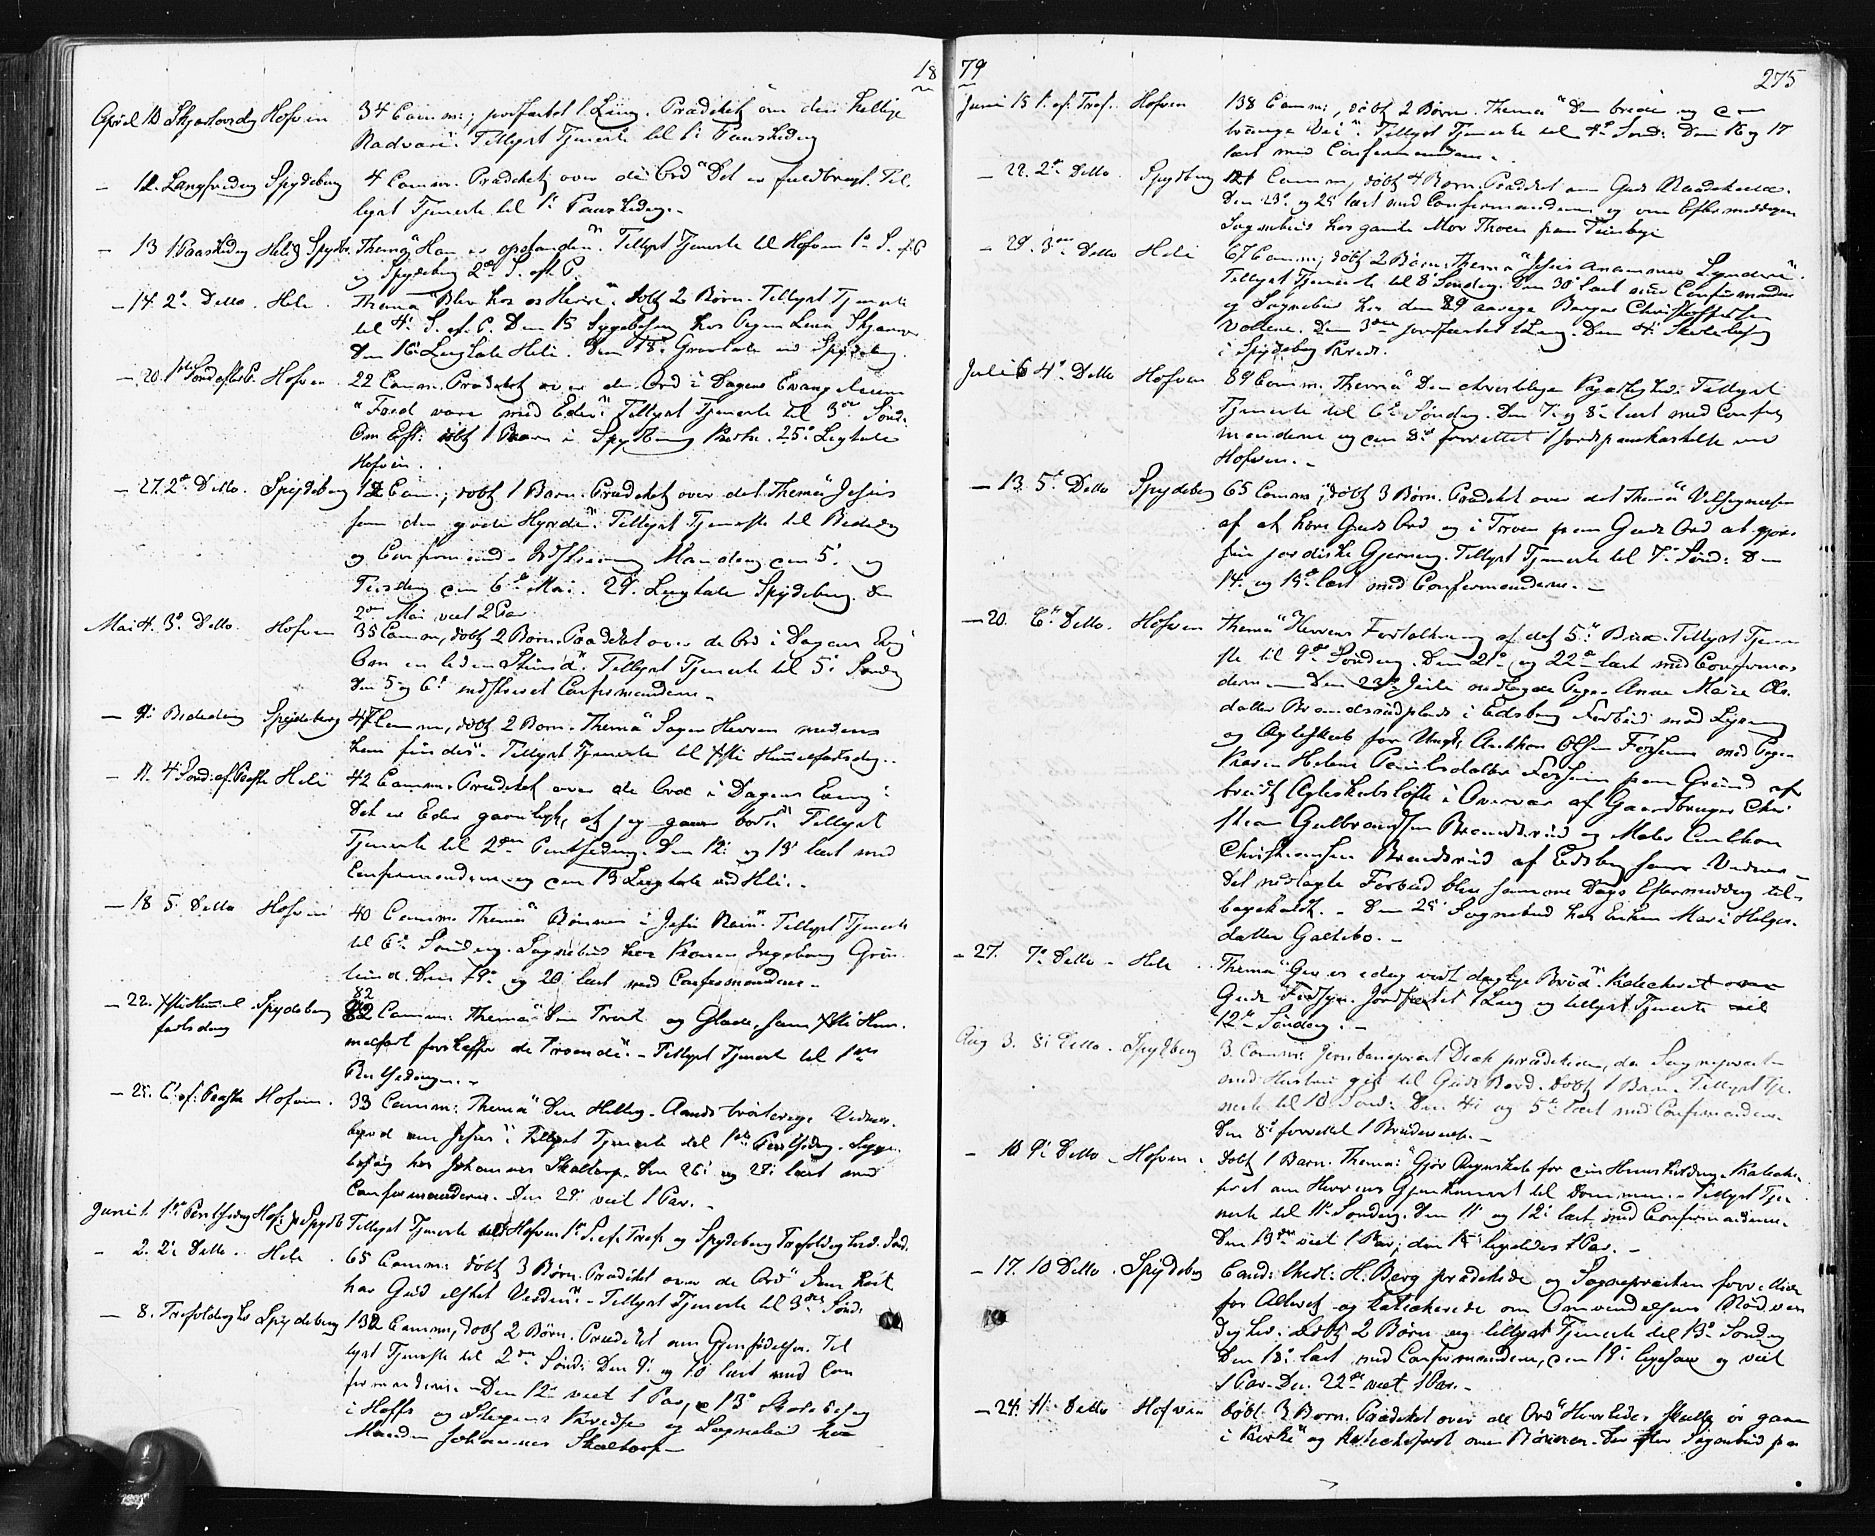 18
April 10 Skjærtorsdag Hofvin 34 Comm:; jordfæstet 1 Liig. Prædiket om den hellige
Nadvere. Tillyst Tjeneste til 1ste Paaskedag
— Langfredag Spydeberg 4 Comm. Prædiket over de Ord "Det er fuldbragt. Til
lyst Tjeneste til 1ste Paaskedag. -
— 13 1 Paaskedag Heli & Spydb. Thema "Han er opstanden". Tillyst Tjeneste til Hofvin 1ste S. ef. P
og Spydeberg 2den S. eft. P.
— 14. 2den Detto. Heli. Thema "Bliv hos os Herre". Døbt 2 Børn. Tillyst Tjeneste
til 4de S. ef. P. Den 15 Sygebesøg hos
den 16 Ligtale Heli. Den 18. Gravtale ved Spydeberg.
— 20. 1ste Sønd. efter P. Hofvin. 22 Comm. Prædiket over de Ord i Dagens Evangelium
"Fred være med Eder". Tillyst Tjeneste til 3die Sønd.
Om Eft: døbt 1 Barn i Spydeberg Kirke. 25de Ligtale
Hofvin.
— 27. 2den Detto. Spydeberg 12 Com., døbt 1 Barn. Prædiket over det Thema Jesus
som den gode Hyrde". Tillyst Tjeneste til Bededag
og Confirmand. Indskrivning Mandag den 5. og
Tirsdag den 6te Mai. 29. Ligtale Spydeberg. Den
2den Mai viet 2 Par
Mai 4. 3die Detto. Hofvin 35 Comm, døbt 2 Børn. Prædiket over de Ord i Dagens Evg
Om en liden Stund". Tillyst Tjeneste til 5te Søndag
Den 5 og 6te indskrevet Confirmanderne -
— 9. Bededag Spydeberg 47 Comm, døbt 2 Børn. Thema "Søger Herren medens
han findes". Tillyst Tjeneste til Xsti Himmelfartsdag.
— 11. 4 Sønd. ef. Paaske Heli 42 Comm. Prædiket over de Ord i Dagens Evang:
Det er Eder gavnligt, at jeg gaaer bort". Tillyst
Tjeneste til 2den Pintsedag. Den 12. og 13de læst med
Confirmanderne og den 13 Ligtale ved Heli. -
— 18 5. Detto Hofvin 40 Comm. Thema "Bønnen i Jesu Navn". Tillyst Tjeneste
til 6te Søndag. Sognebud hos Konen Ingeborg Grøn
lund. Den 19de og 20 læst med Confirmanderne -
— 22. Xsti Himmel Spydeberg 82 Comm: Thema "Den Trøst og Glæde, som Xsti Him-
fartsdag melfart forskaffer de Troende". - Tillyst Tjeneste til 1ste
Pintsedag. -
— 25. 6. ef. Paaske Hofvin. 33 Comm: Thema "Den Hellig-Aands trøsterige Vidnes-
byrd om Jesus". Tillyst Tjeneste til 1ste Pintsedag. Syge-
besøg hos Johannes Skaltorp. Den 26. og 27. læst med
Confirmanderne. Den 29. viet 1 Par. -
Juni 1. 1ste Pintsedag Hof: & Spydb Tillyst Tjeneste til Hofvin 1ste S. ef. Tref. og Spydeberg Trefoldigheds Sønd.
— 2. 2. Detto. Heli. 65 Comm: døbt 3 Børn. Prædiket over de Ord "Saa høit
har Gud elsket Verden". - Tillyst Tjeneste til 3die Sønd:
— 8. Trefoldigh. Spydeberg 132 Comm, døbt 2 Børn. Prædiket om Gjenfødelsen. Til
lyst Tjeneste til 2den Sønd: Den 9. og 10 læst med Con
firmanderne. - Den 12te viet 1 Par, 13. Skolebesøg
i Hoffs og Kredse og Sognebud hos
Manden Johannes Skaltorp -
79
275
Juni 15 1. ef. Tref. Hofvin 138 Comm:, døbt 2 Børn. Thema "Den brede og den
trange Vei". Tillyst Tjeneste til 4de Sønd: Den 16 og 17
læst med Confirmanderne. -
— 22. 2den Detto. Spydeberg 121 Comm, døbt 4 Børn. Prædiket om Guds
Den 23de og 25 læst med Confirmanderne og om Eftermiddagen
Sognebud hos gamle Mor
— 29. 3die Detto Heli 67 Comm; døbt 2 Børn. Thema "Jesus annammer Syndere".
Tillyst Tjeneste til 8. Søndag. Den 30 læst med Confirmanderne
og Sognebud hos den 89 aarige Christoffersen
Vollene. Den 3die jordfæstet 1 Liig. Den 4. Skolebesøg
i Spydeberg Kreds.
Juli 6 4de Detto Hofvin 89 Comm. Thema "Den christelige Kjærlighed. Tillyst
Tjeneste til 6te Søndag. Den 7. og 8. læst med Confir
manderne og den 8de forrettet Jordpaakastelse ved
Hofvin. -
— 13. 5te Detto Spydeberg 65 Comm; døbt 3 Børn. Prædiket over det Thema "Velsignelsen
af at høre Guds Ord og i Troen paa Guds Ord at gjøre
sin jordiske Gjerning. Tillyst Tjeneste til 7. Sønd: Den
14. og 15de læst med Confirmanderne. -
— 20. 6te Detto. Hofvin Thema "Herrens Fortolkning af det 5te Bud. Tillyst Tjene
ste til 9de Søndag. Den 21de og 22de læst med Confirman
derne — Den 23de Juli nedlagde Pige Anne Marie Ols
datter Brandsrudplads i Edsberg Forbud mod Lysning
og Ægteskab for Ungk. Anthon Olsen Forsum med Pige
Karen Helene Paulsdatter Forsum paa Grund af
brudt Ægteskabsløfte i Overvær af Gaardbruger Chri
stian Gulbrandsen Brandsrud og Maler Anthon
Christiansen Brandsrud af Edsberg som Vidner -
Det nedlagte Forbud blev samme Dags Eftermiddag til-
bagekaldt. - Den 25. Sognebud hos Enken Mari Helges-
datter Galtebo. -
— 27. 7de Detto - Heli. Thema "Giv os idag vort daglige Brød". Katechiseret over
Guds Forsyn. Jordfæstet 1 Liig og tillyst Tjeneste til
12te Søndag. -
Aug 3. 8. Detto - Spydeberg 3 Comm: prædikede, da Sognepræsten
med Hustru gik til Guds Bord. Døbt 1 Barn. Tillyst Tje
neste til 10. Sønd: Den 4. og 5te læst med Confirmanderne.
Den 8. forrettet 1 Brudevielse. -
— 10 9. Detto - Hofvin. Døbt 1 Barn. Thema: "Gjør Regnskab for din Huusholdning. Kateche-
seret om Herrens Gjenkomst til Dommen. - Tillyst Tje-
neste til 11. Søndag. Den 11. og 12. læst med Confirmanderne.
Den 13de viet 1 Par, den 15. ligeledes 1 Par. -
— 17. 10 Detto. Spydeberg Cand: theol: H. Berg prædikede og Sognepræsten forrettede
for Alteret og katechiserede om Omvendelsens Nødven
dighed. Døbt 2 Børn og tillyst Tjeneste til 13de Søndag
Den 18. læst med Confirmanderne, den 19. ligesaa og viet
1 Par. Den 22de viet 1 Par. -
— 24. 11. Detto Hofvin Døbt 3 Børn. Prædiket over de Ord "Hvorledes skulle vi gaae
i Kirke" og katechiseret om Bønnen. Derefter Sognebud paa